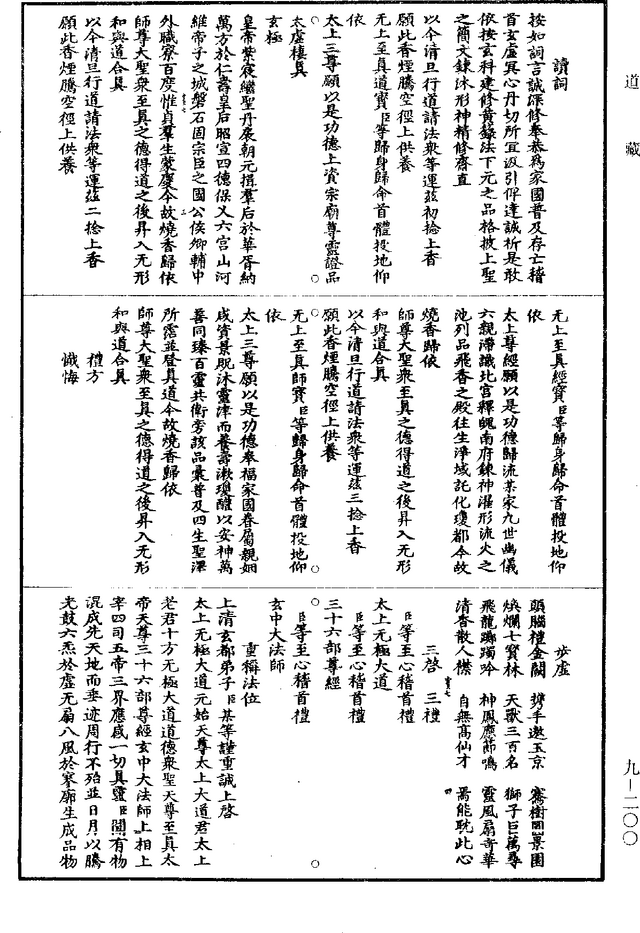 道藏
讀詞
按如詞言誠深修奉恭為家國普及存亡稽
首玄虛冥心丹切所宜汲引俾達誠祈是敢
依按玄科建修黃籙法下元之品格披上聖
之簡文鍊沐形神精修齋直
以今清旦行道請法眾等運茲初捻上香
願此香煙騰空徑上供養
无上至真道寶臣等歸身歸命首體投地仰
依
太上三尊願以是功德上資宗廟尊靈證品
太虛棲真
玄極
皇帝紫宸繼聖丹扆朝元揖羣后於華胥納
萬方於仁壽皇后昭宣四德保乂六宮山河
維帝子之城磐石固宗臣之國公侯卿輔中
外職寮百度惟貞羣生蒙慶今故燒香歸依
師尊大聖眾至真之德得道之後昇入无形
和與道合真
以今清旦行道請法眾等運茲二捻上香
願此香煙騰空徑上供養
无上至真經寶臣等歸身歸命首體投地仰
依
太上尊經願以是功德歸流某家九世幽儀
六親滯識北宮釋魄南府鍊神濯形流火之
池列品飛香之殿往生淨域託化瓊都今故
燒香歸依
師尊大聖眾至真之德得道之後昇入无形
和與道合真
以今清旦行道請法眾等運茲三捻上香
願此香煙騰空徑上供養
无上至真師寶臣等歸身歸命首體投地仰
依
太上三尊願以是功德奉福家國眷屬親姻
咸賓景貺沐靈津而養壽漱瓊醴以安神萬
善同臻百靈共衛旁該品彙普及四生聖澤
所霑並登真道今故燒香歸依
師尊大聖眾至真之德得道之後昇入无形
和與道合真
禮方
懺悔
步虛
頭腦禮金闕 携手遨玉京 騫樹圓景園
煥爛七寶林 天獸三百名 獅子巨萬尋
飛龍躑躅吟 神鳳應節鳴 靈風扇奇華
清香散人襟 自無高仙才 焉能耽此心
三啟 三禮
臣等至心稽首禮
太上无極大道
臣等至心稽首禮
三十六部尊經
臣等至心稽首禮
玄中大法師
重稱法位
上清玄都弟子臣某等謹重誠上啟
太上无極大道元始天尊太上大道君太上
老君十方无極大道道德眾聖天尊至真太
帝天尊三十六部尊經玄中大法師上相上
宰四司五帝三界應感一切真靈臣聞有物
混成先天地而垂迹周行不殆並日月以騰
光鼓六炁於虛无扇八風於寥廓生成品物
九－二〇〇